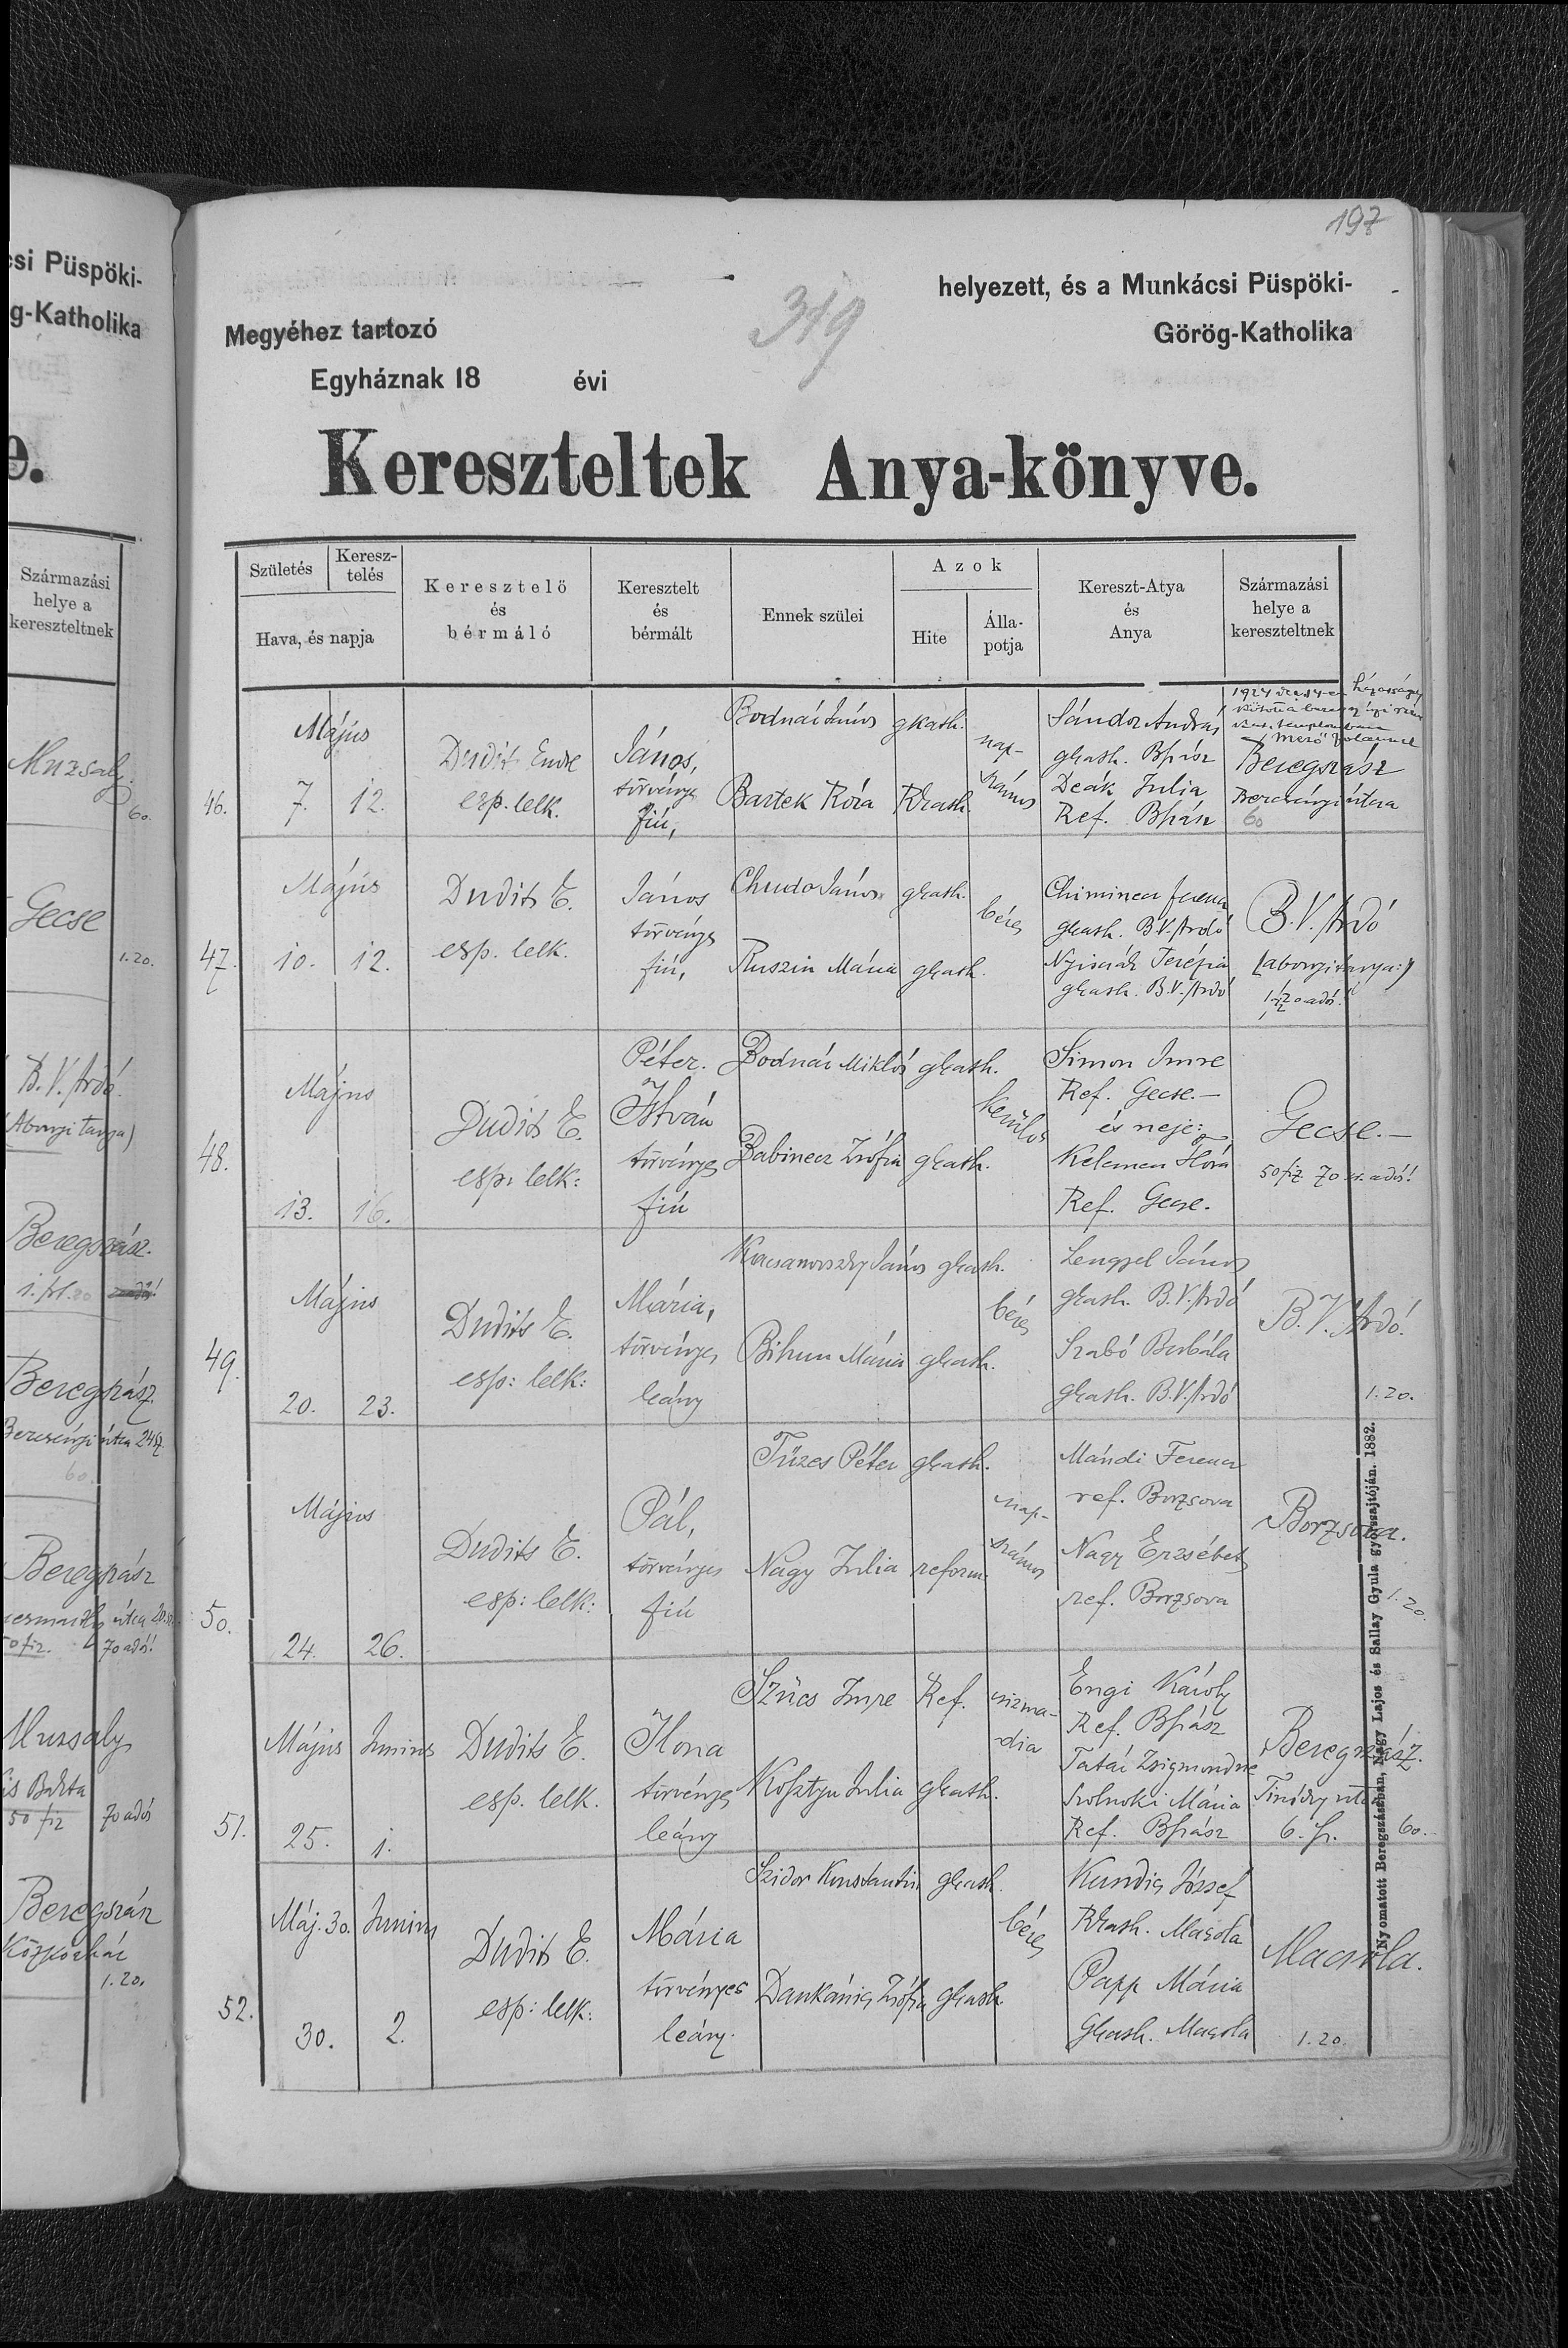 si Püspöki-
g-Katholika
e.
Származási
helye a
kereszteltnek
Muzsaly.
60.
Gecse
1.20.
B. V. Ardó.
(Abonyi tanya)
Beregszász.
Beregszász.
Bercsényi útca 24 sz.
60.
Beregszász
70 adós!
Muzsaly
50 fiz 70 adós
Beregszász
Közkórház
1.20.
197
319
helyezett, és a Munkácsi Püspöki-
Megyéhez tartozó
Görög-Katholika
Egyháznak 18 évi
Kereszteltek Anya-könyve.
Születés
Keresz-
telés
Hava, és napja
Keresztelő
és
bérmáló
Keresztelt
és
bérmált
Ennek szülei
Azok
Hite
Álla-
potja
Kereszt-Atya
és
Anya
Származási
helye a
kereszteltnek
46.
Május
7. 12.
Dudits Endre
esp. lelk.
János,
törvényes
fiú,
Bodnár János gkath.
Bartek Róza Rkath.
nap-
számos
Sándor András
gkath. Bszász
Deák Julia
Ref. Bszász
Beregszász
Bercsényi útca
60
47.
Május
10. 12.
Dudits E.
esp. lelk.
János
törvényes
fiú,
Chudo János gkath.
Ruszin Mária gkath.
béres
Chiminecz Ferencz
gkath. B.V. Ardó
Terézia
gkath. B.V. Ardó
B. V. Ardó
(abonyi tanya:)
48.
Május
13. 16.
Dudits E.
esp: lelk:
Péter.
István
törvényes
fiú
Bodnár Miklós gkath.
Babinecz Zsófia gkath.
kerülő
Simon Imre
Ref. Gecse.—
és neje:
Kelemen Flóra
Ref. Gecse.
Gecse.—
50 fiz 70 kr. adós!
49.
Május
20. 23.
Dudits E.
esp: lelk:
Mária,
törvényes
leány
Kacsanovszky János gkath.
Bihun Mária gkath.
béres
Lengyel János
gkath. B.V. Ardó
Szabó Borbála
gkath. B.V. Ardó
B. V. Ardó.
1.20.
50.
Május
24. 26.
Dudits E.
esp: lelk:
Pál,
törvényes
fiú
Tüzes Péter gkath.
Nagy Julia reform.
nap-
számos
Mándi Ferencz
ref. Borzsova
Nagy Erzsébet
ref. Borzsova
Borzsova.
1.20.
51.
Május Junius
25. 1.
Dudits E.
esp. lelk.
Ilona
törvényes
leány
Szücs Imre Ref.
Kosztyu Julia gkath.
csizma-
dia
Engi Károly
Ref. Bszász
Tatár Zsigmondné
Szolnoki Mária
Ref. Bszász
Beregszász.
Tinódy útca
60.
52.
Máj. 30. Junius
30. 2.
Dudits E.
esp: lelk:
Mária
törvényes
leány.
Szidor Konstantin gkath.
Dankánics Zsófia gkath
béres
Kundia József
Rkath. Macsola
Papp Mária
Gkath. Macsola
Macsola.
1.20.
Nyomatott Beregszászban, Nagy Lajos és Sallay Gyula gyorssajtóján. 1882.